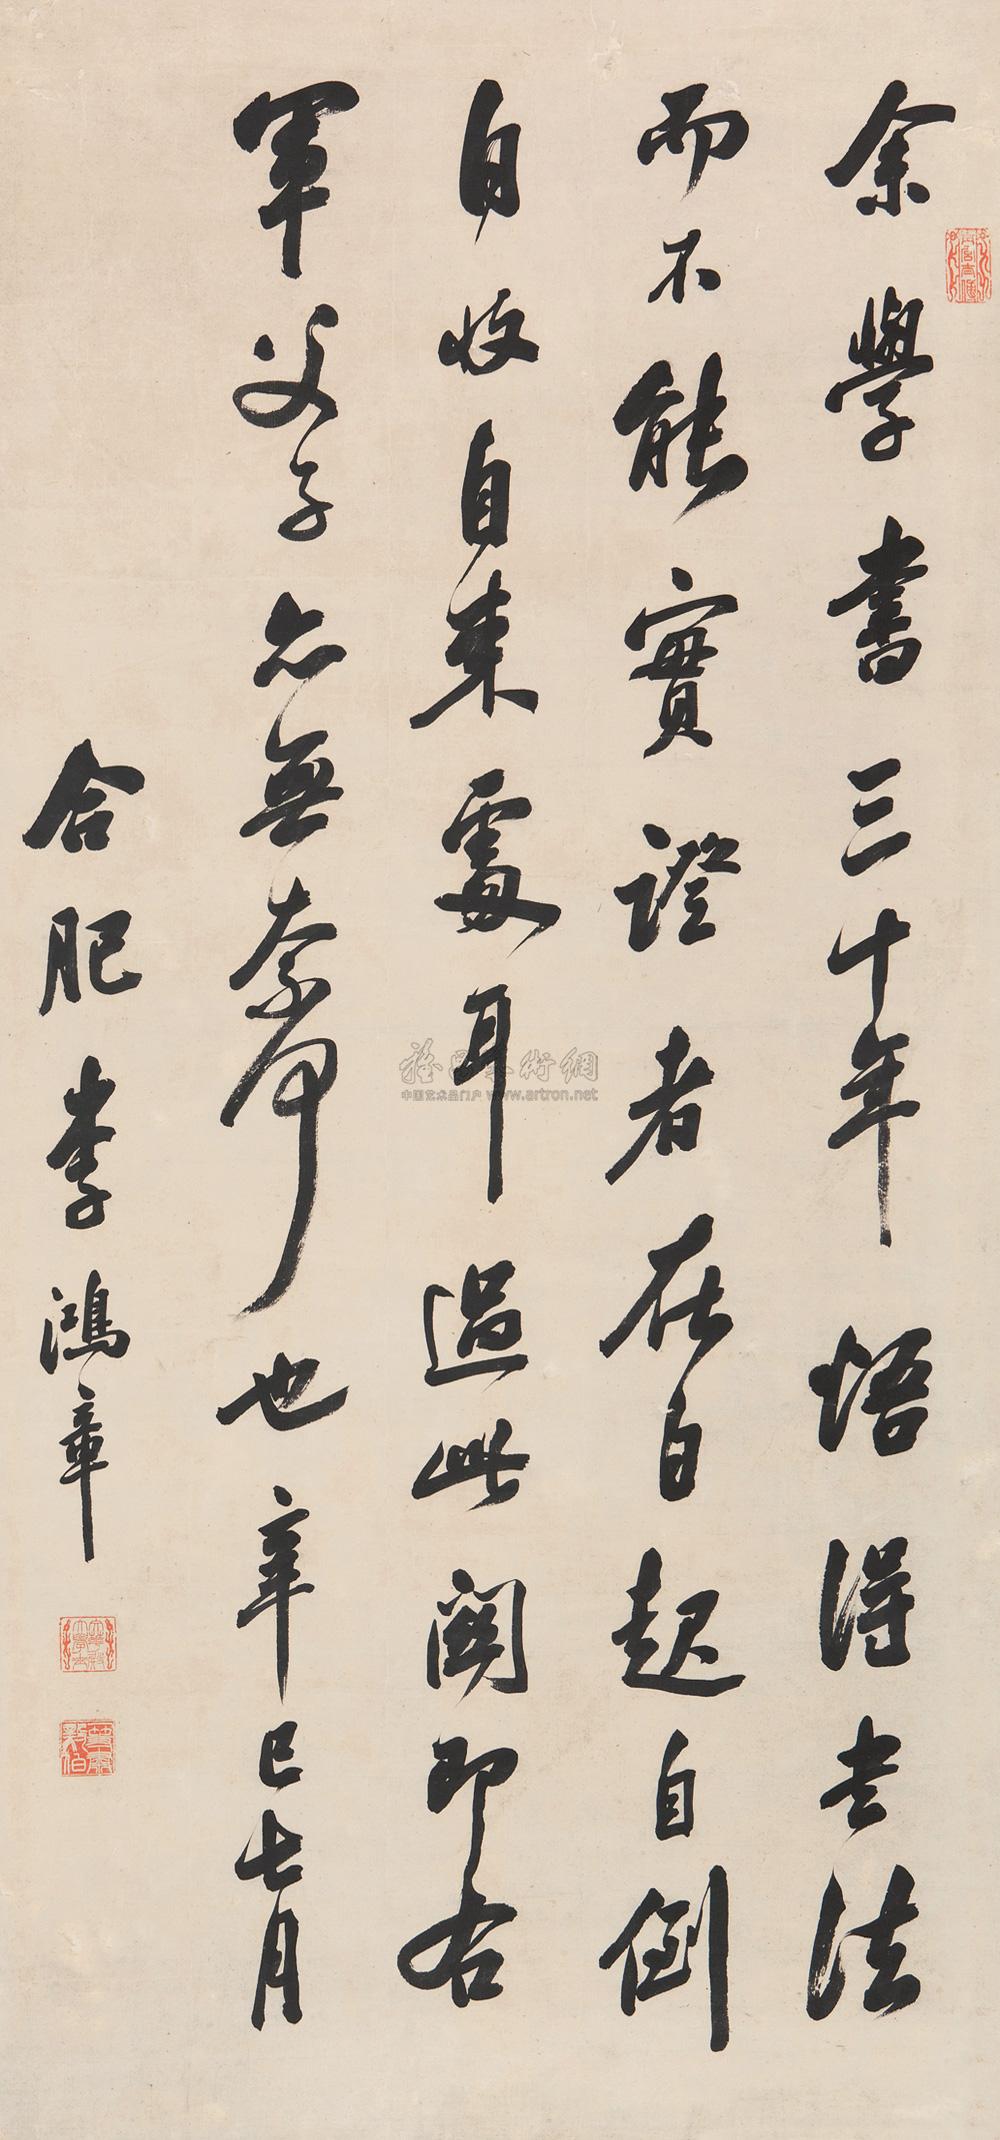 余學書三十年悟得書法
而不能實證者在自起自倒
自收自束處耳過此關即右
軍父子亦無奈何也辛巳七月
合肥李鴻章
雅昌艺術網
中国艺术品门户 www.artron.net